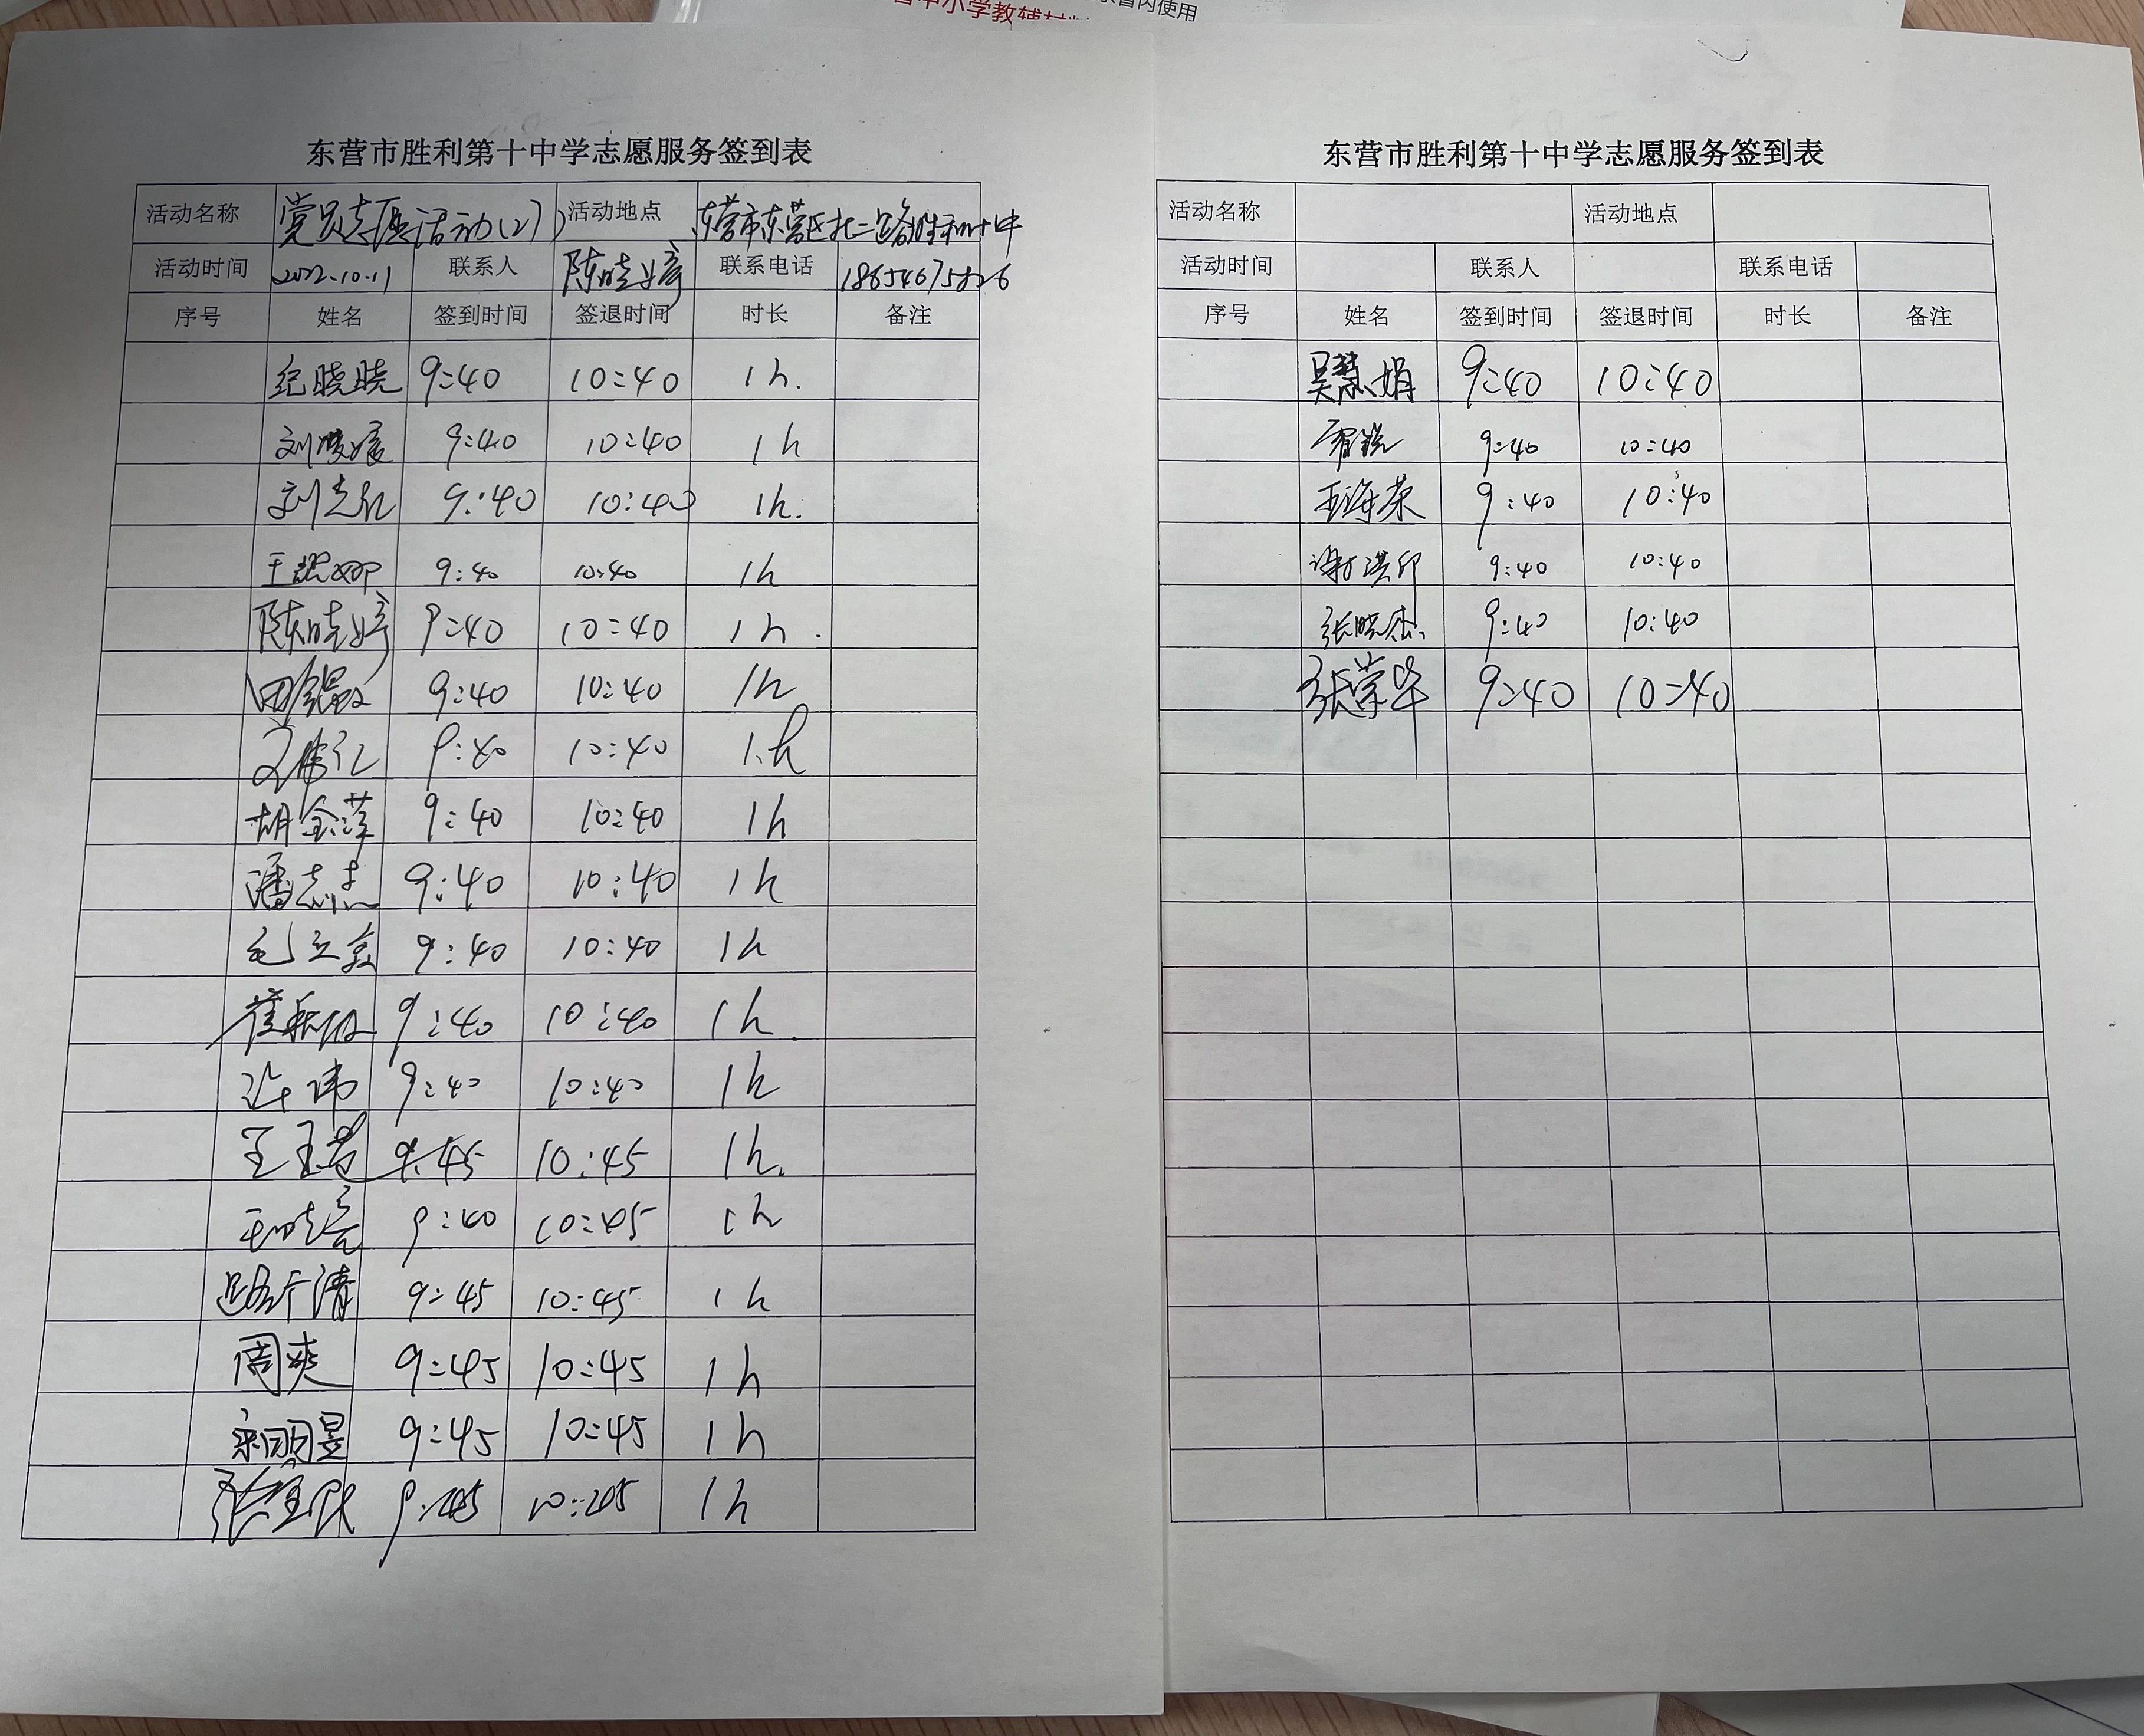 营内使用
中小学教辅材料
东营市胜利第十中学志愿服务签到表
活动名称 党员志愿活动(2) 活动地点 东营市东营区北二路胜利十中
活动时间 2022.10.11 联系人 陈晓婷 联系电话 18654675826
序号 姓名 签到时间 签退时间 时长 备注
纪晓晓 9:40 10:40 1h.
刘 9:40 10:40 1h
刘志红 9:40 10:40 1h.
王 9:40 10:40 1h
陈晓婷 9:40 10:40 1h.
田 9:40 10:40 1h
9:40 10:40 1.h
胡金萍 9:40 10:40 1h
潘志杰 9:40 10:40 1h
毛立京 9:40 10:40 1h
崔 9:40 10:40 1h
许玮 9:40 10:40 1h
王玉 9:45 10:45 1h.
王晓亮 9:40 10:45 1h
路广清 9:45 10:45 1h
周爽 9:45 10:45 1h
宋明昱 9:45 10:45 1h
张 9:45 10:45 1h
东营市胜利第十中学志愿服务签到表
活动名称 活动地点
活动时间 联系人 联系电话
序号 姓名 签到时间 签退时间 时长 备注
吴慧娟 9:40 10:40
9:40 10:40
王海荣 9:40 10:40
谢洪印 9:40 10:40
张晓杰 9:40 10:40
张荣华 9:40 10:40